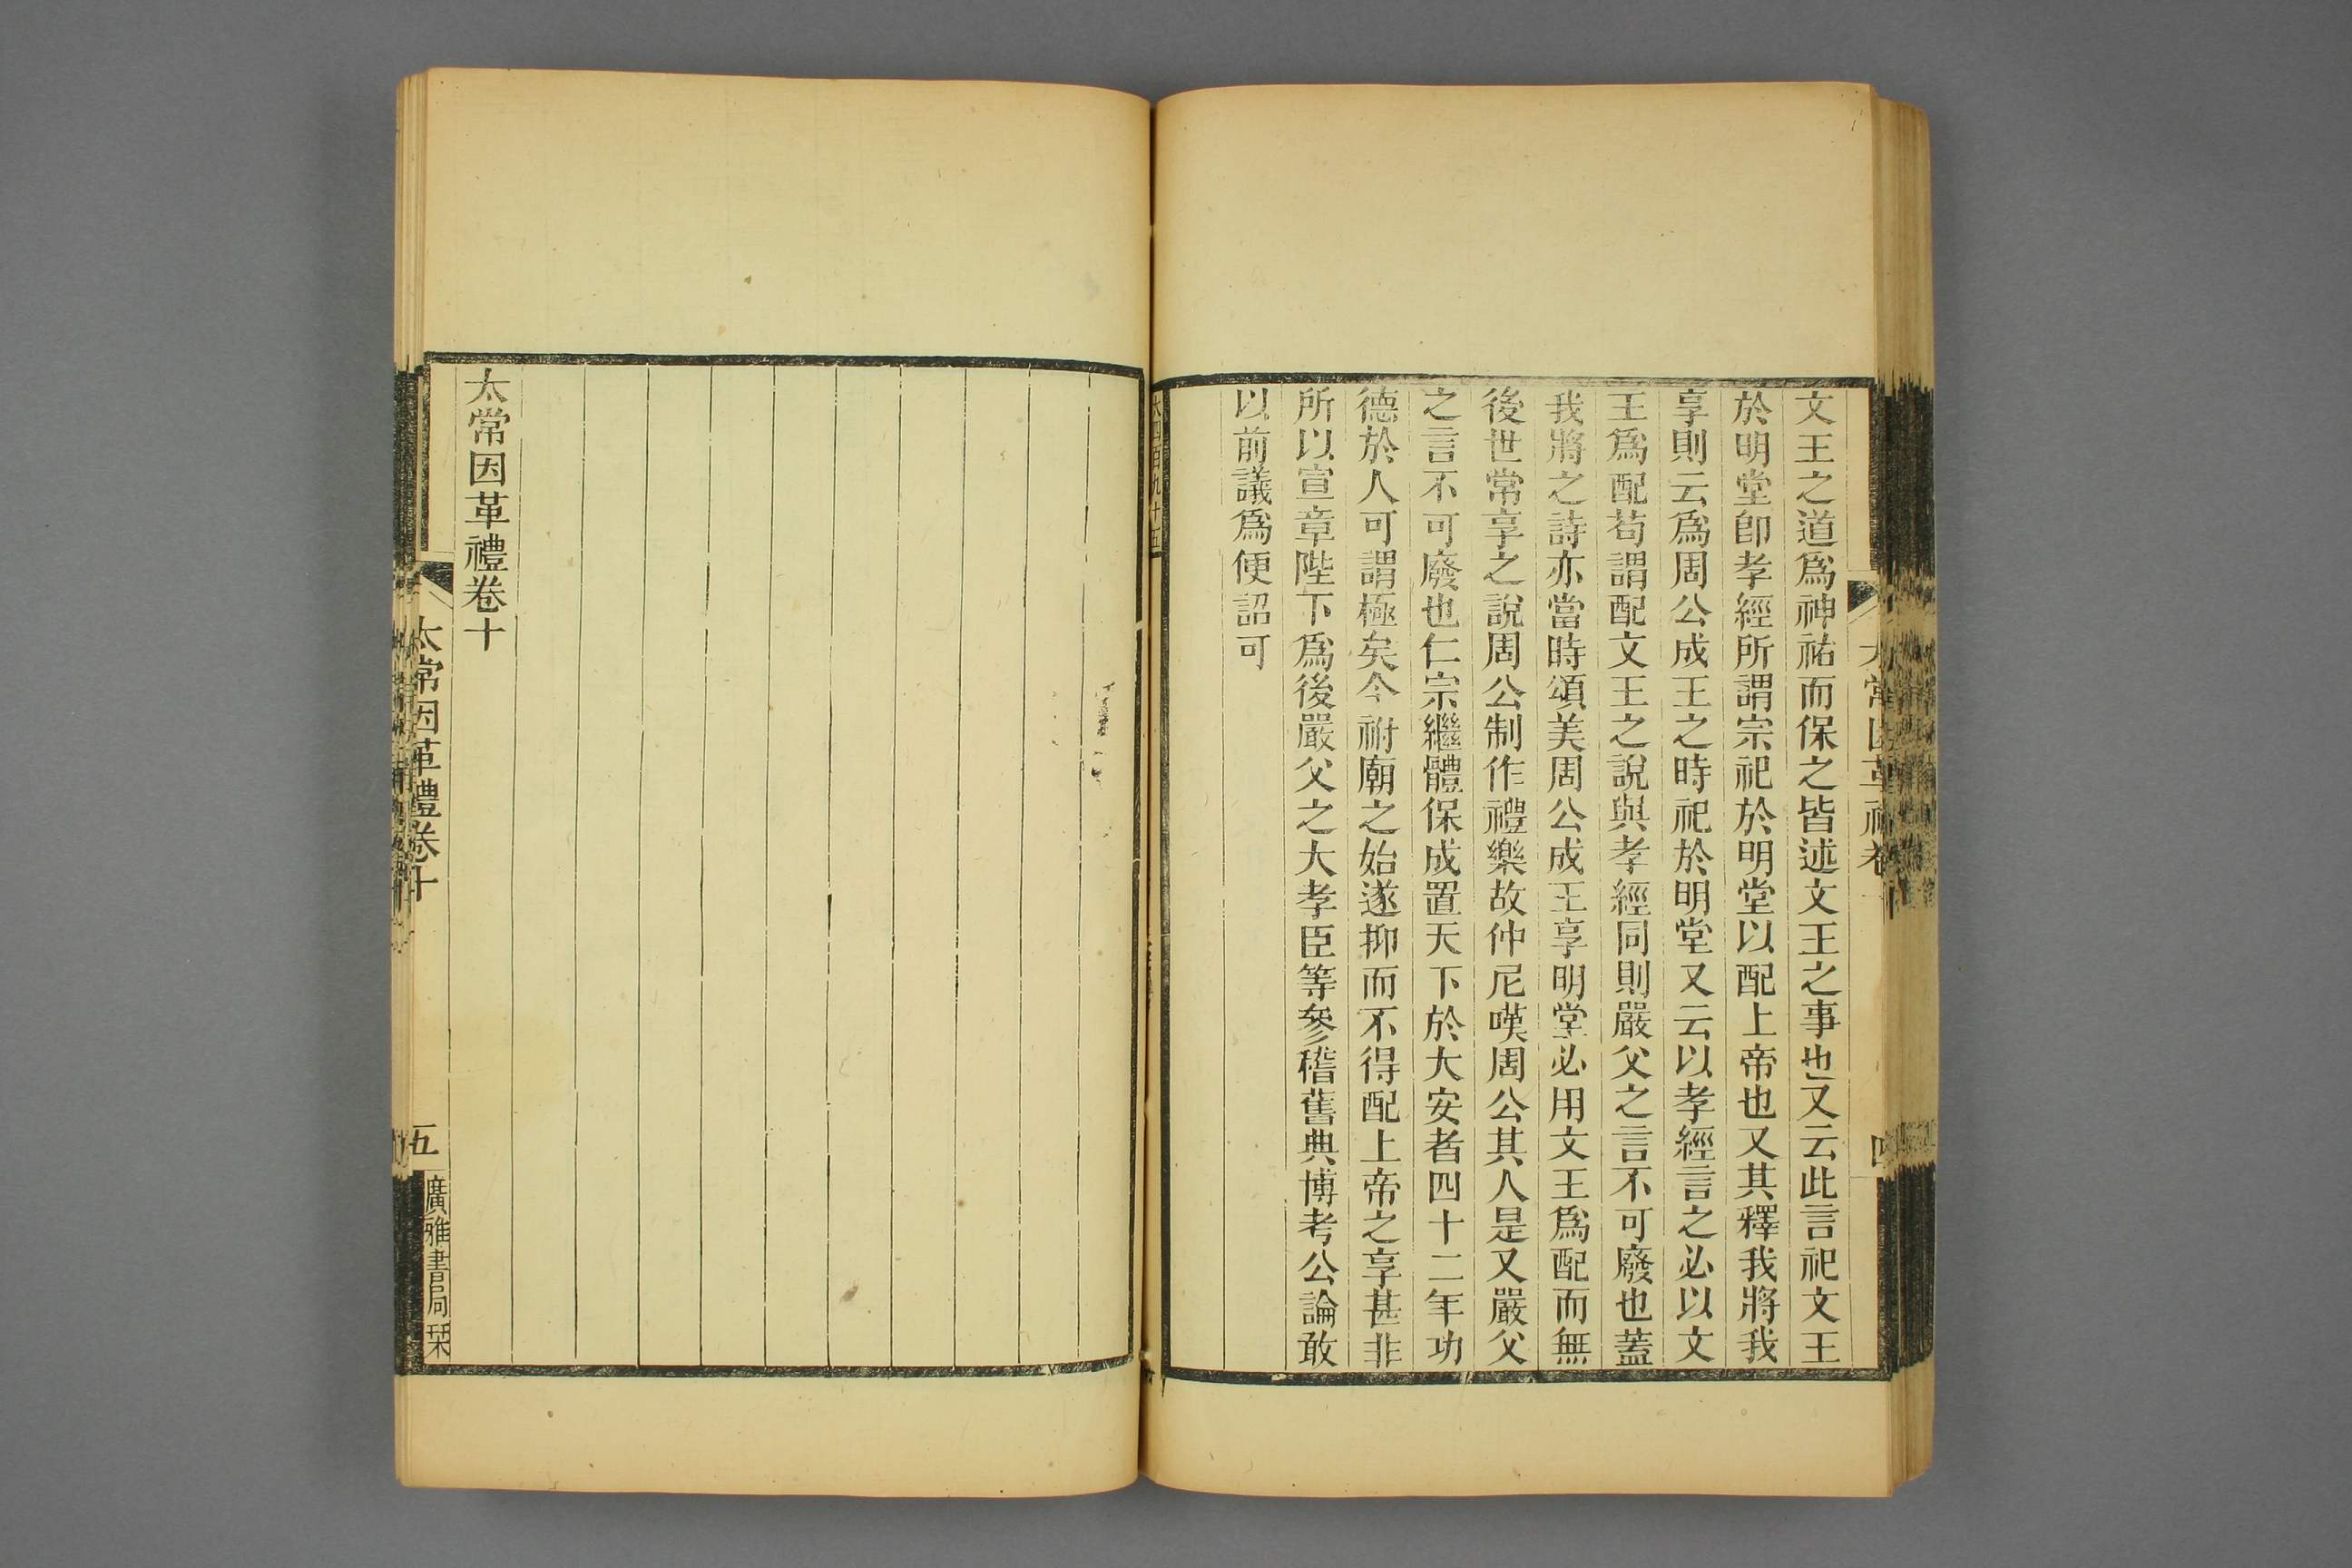 文王之道爲神祐而保之皆述文王之事也又云此言祀文王
於明堂卽孝經所謂宗祀於明堂以配上帝也又其釋我將我
享則云爲周公成王之時祀於明堂又云以孝經言之必以文
王爲配苟謂配文王之說與孝經同則嚴父之言不可廢也蓋
我將之詩亦當時頌美周公成王享明堂必用文王爲配而無
後世常享之說周公制作禮樂故仲尼嘆周公其人是又嚴父
之言不可廢也仁宗繼體保成置天下於大安者四十二年功
德於人可謂極矣今祔廟之始遂抑而不得配上帝之享甚非
所以宣章陛下爲後嚴父之大孝臣等參稽舊典博考公論敢
以前議爲便詔可
大四百九十五
太常因革禮卷十
太常因革禮卷十
五
廣雅書局栞